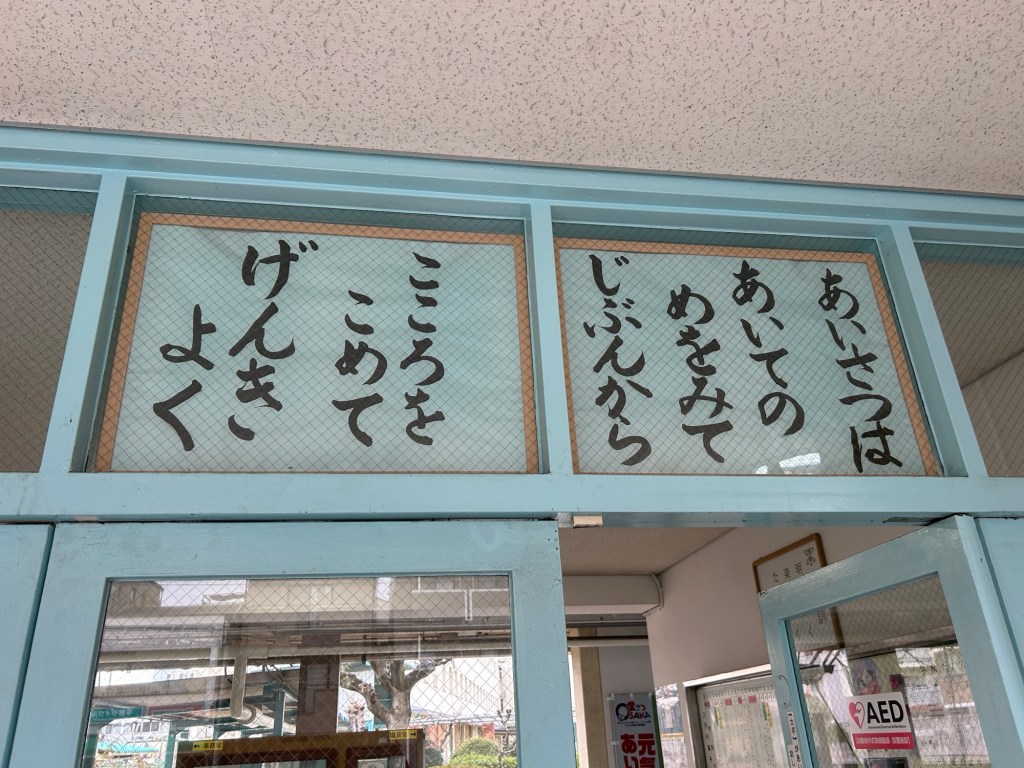 あいさつは
あいての
めをみて
じぶんから
こころを
こめて
げんき
よく
AED
OSAKA
元気
あい